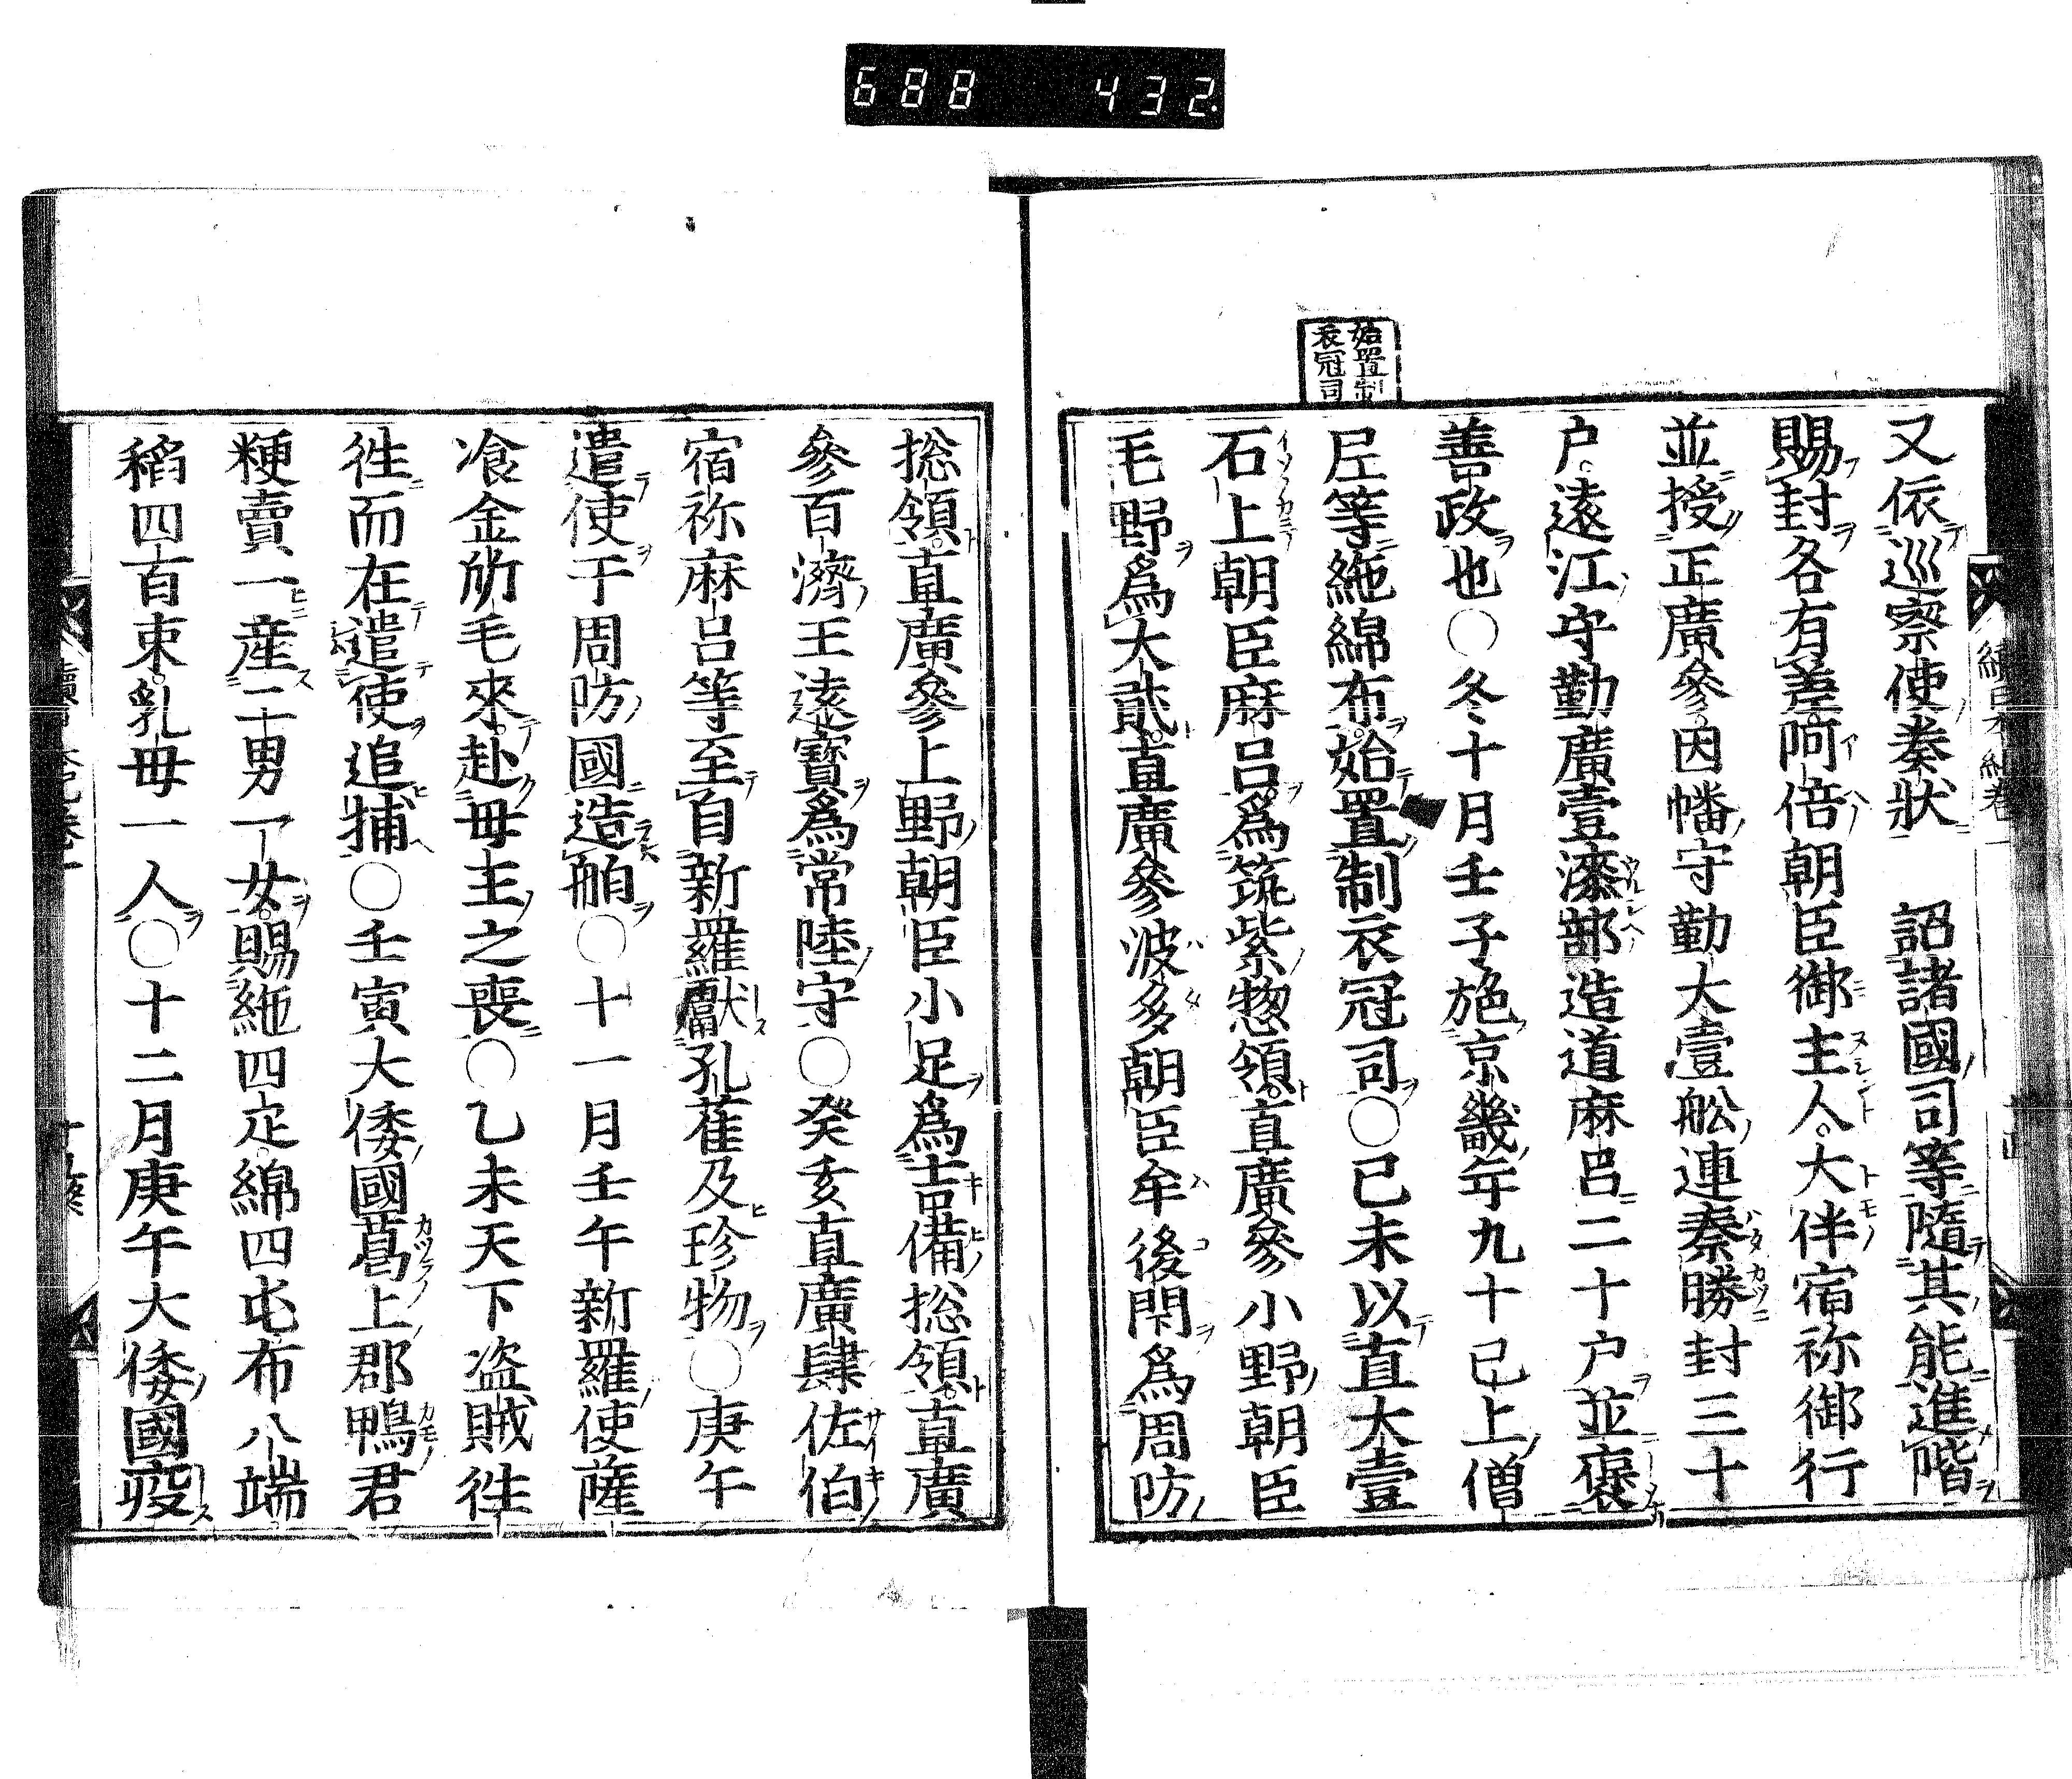 688 432
始置制
衣冠司
又依巡察使奏狀 詔諸國司等隨其能進階
賜封各有差阿倍朝臣御主人大伴宿祢御行
並授正廣參因幡守勤大壹舩連秦勝封三十
戸遠江守勤廣壹漆部造道麻呂二十戸並褒
善政也○冬十月壬子施京畿年九十已上僧
尼等絁綿布始置制衣冠司○己未以直大壹
石上朝臣麻呂爲筑紫惣領直廣參小野朝臣
毛野爲大貳直廣參波多朝臣牟後閇爲周防
捴領直廣參上野朝臣小足爲吉備捴領直廣
參百濟王遠寶爲常陸守○癸亥直廣肆佐伯
宿祢麻呂等至自新羅獻孔雀及珍物○庚午
遣使于周防國造舶○十一月壬午新羅使薩
飡金所毛來赴毋主之喪○乙未天下盗賊徃
徃而在遣使追捕○壬寅大倭國葛上郡鴨君
粳賣一産二男一女賜絁四疋綿四屯布八端
稻四百束乳毋一人○十二月庚午大倭國疫